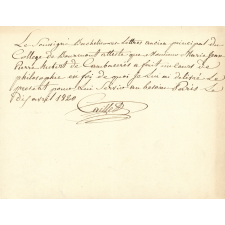 Le soussigné Bachelier es lettres ancien principal du
College de Beaumont atteste que Monsieur Marie Jean
Pierre Hubert de Cambacérès a fait un cours de
philosophie en foi de quoi je lui ai delivré le
present pour lui servir au besoin Paris le
dix avril 1820